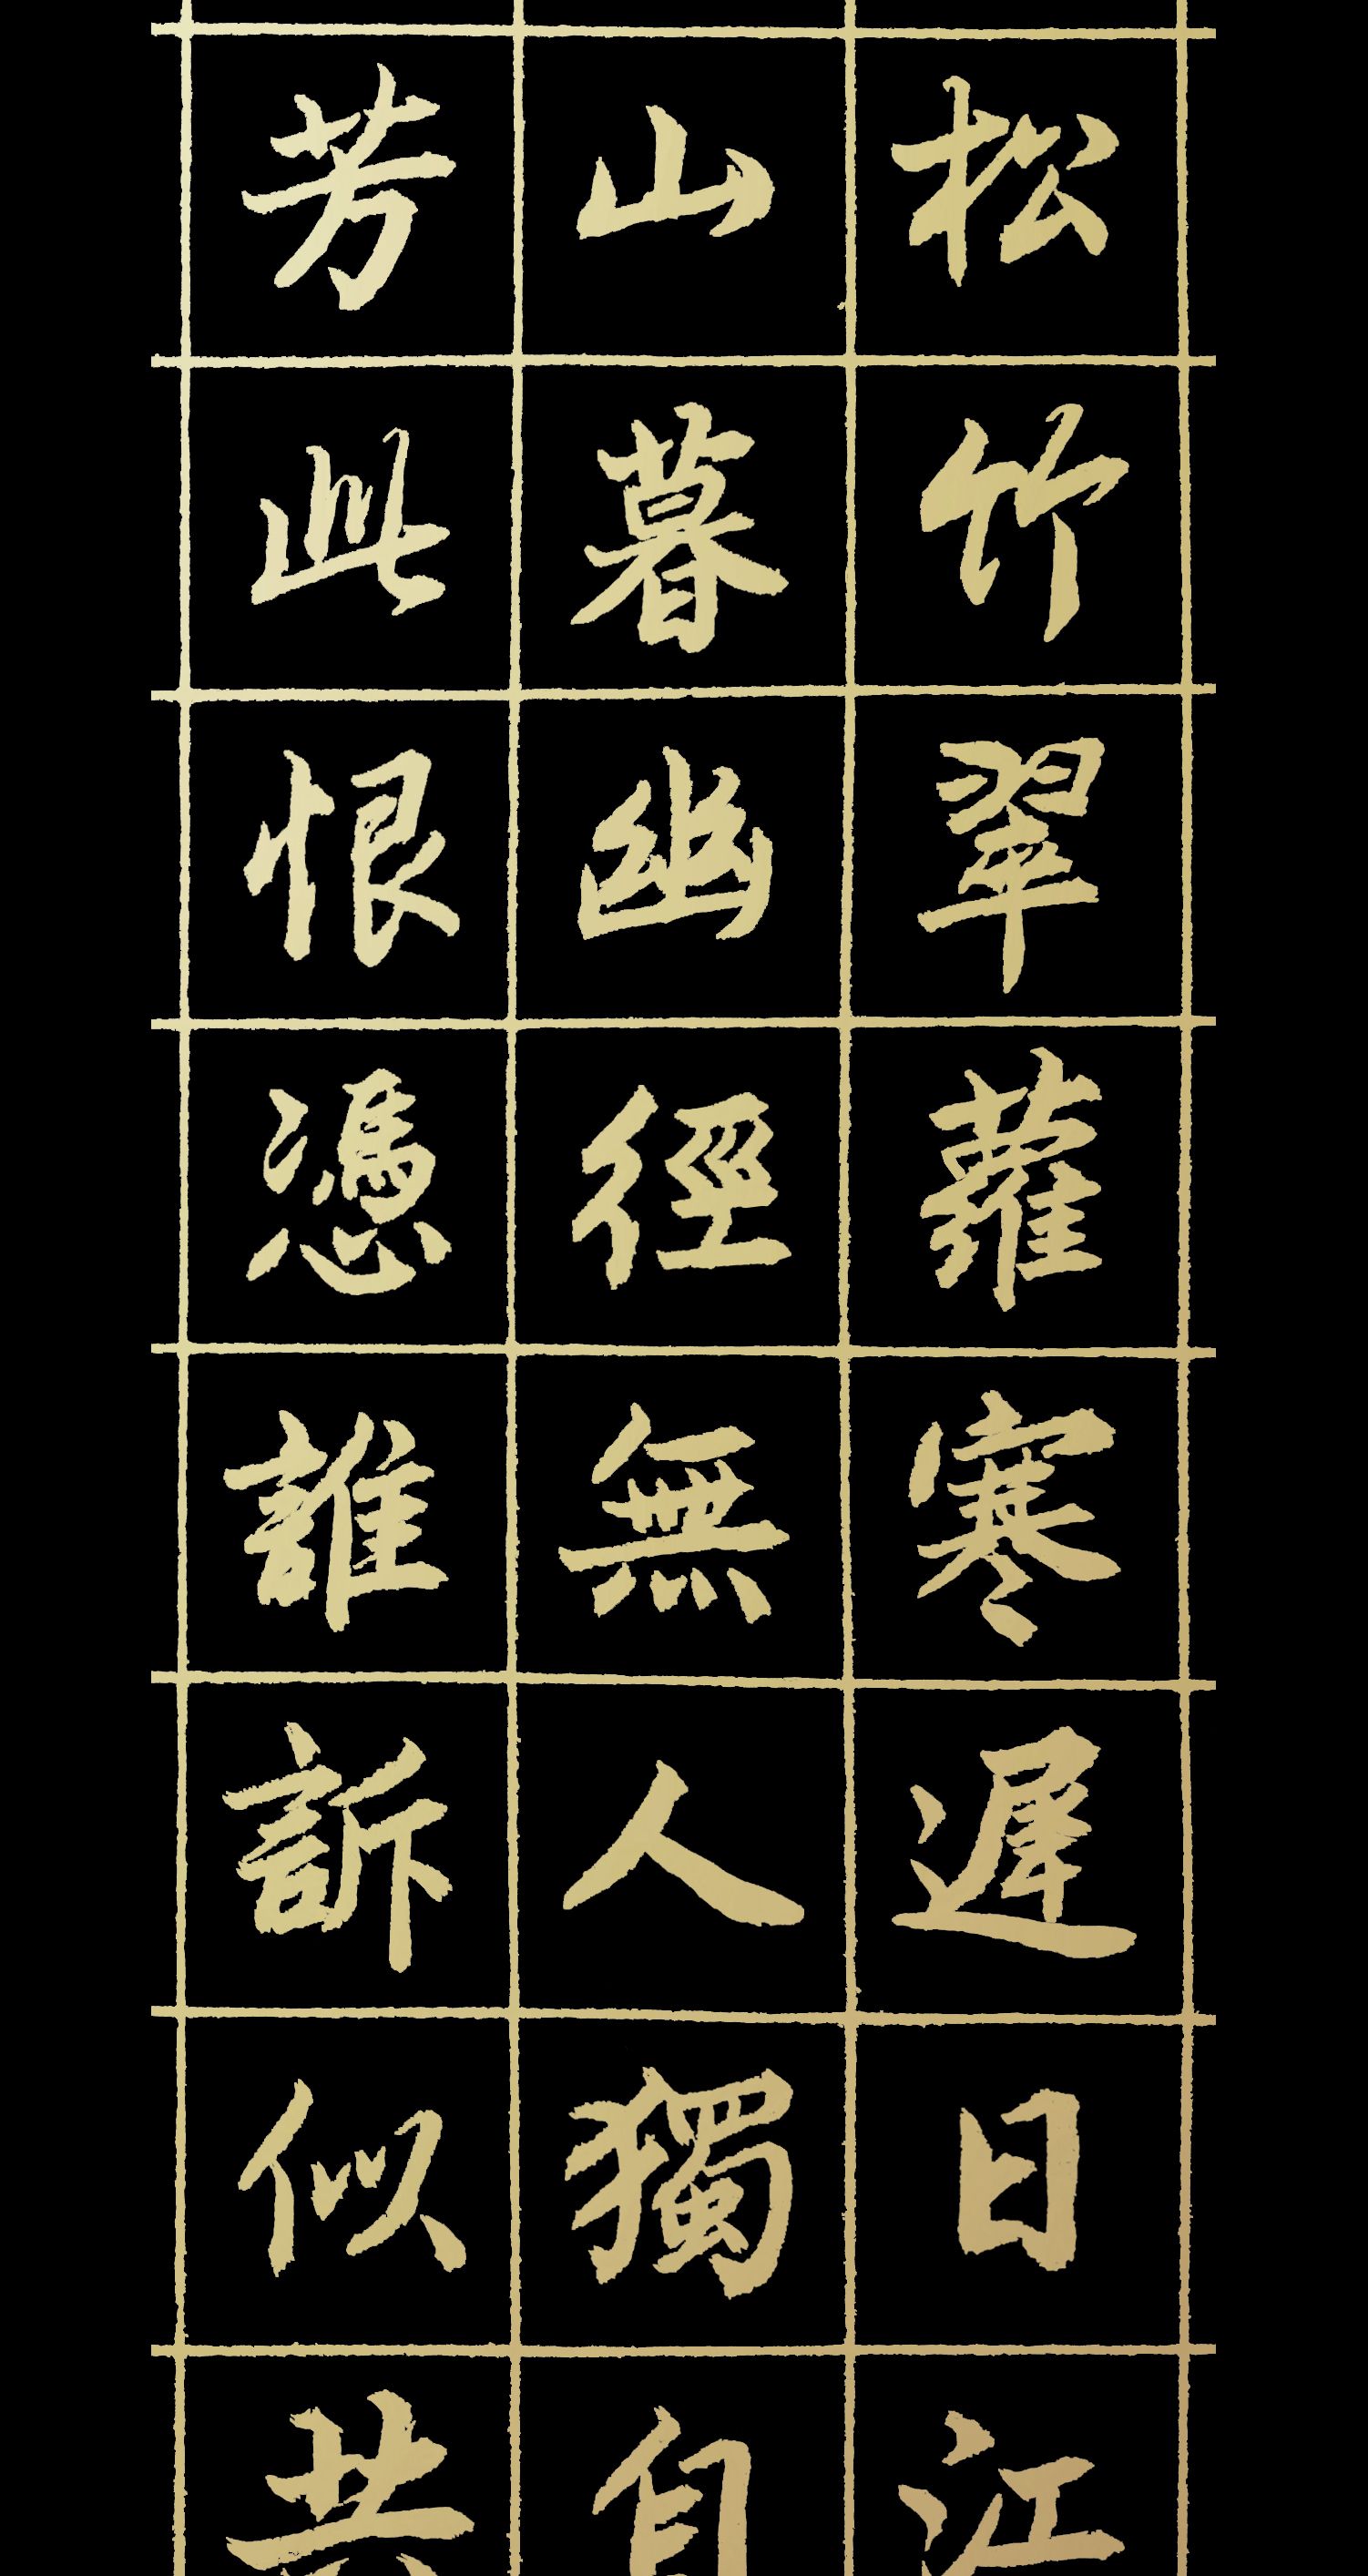 松竹翠蘿寒遲日江
山暮幽徑無人獨自
芳此恨憑誰訴似共